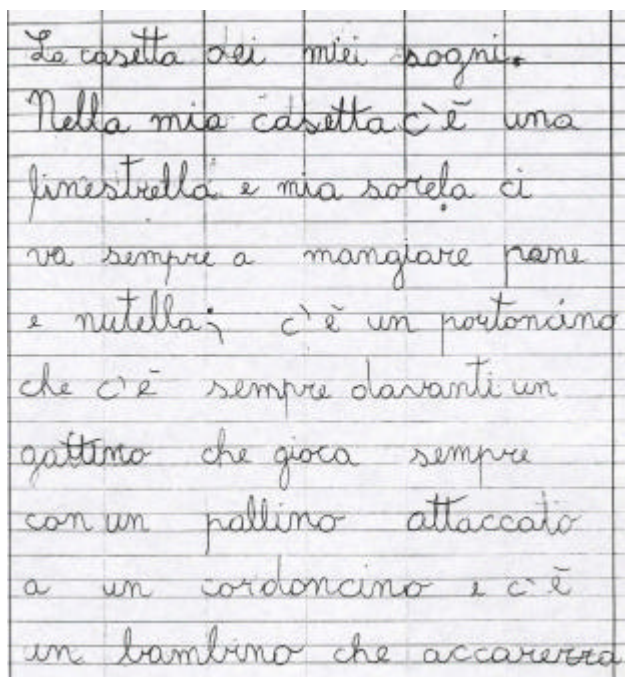 La casetta dei miei sogni.
Nella mia casetta c'è una
finestrella e mia sorela ci
va sempre a mangiare pane
e nutella; c'è un portoncino
che c'è sempre davanti un
gattino che gioca sempre
con un pallino attaccato
a un cordoncino e c'è
un bambino che accarezza